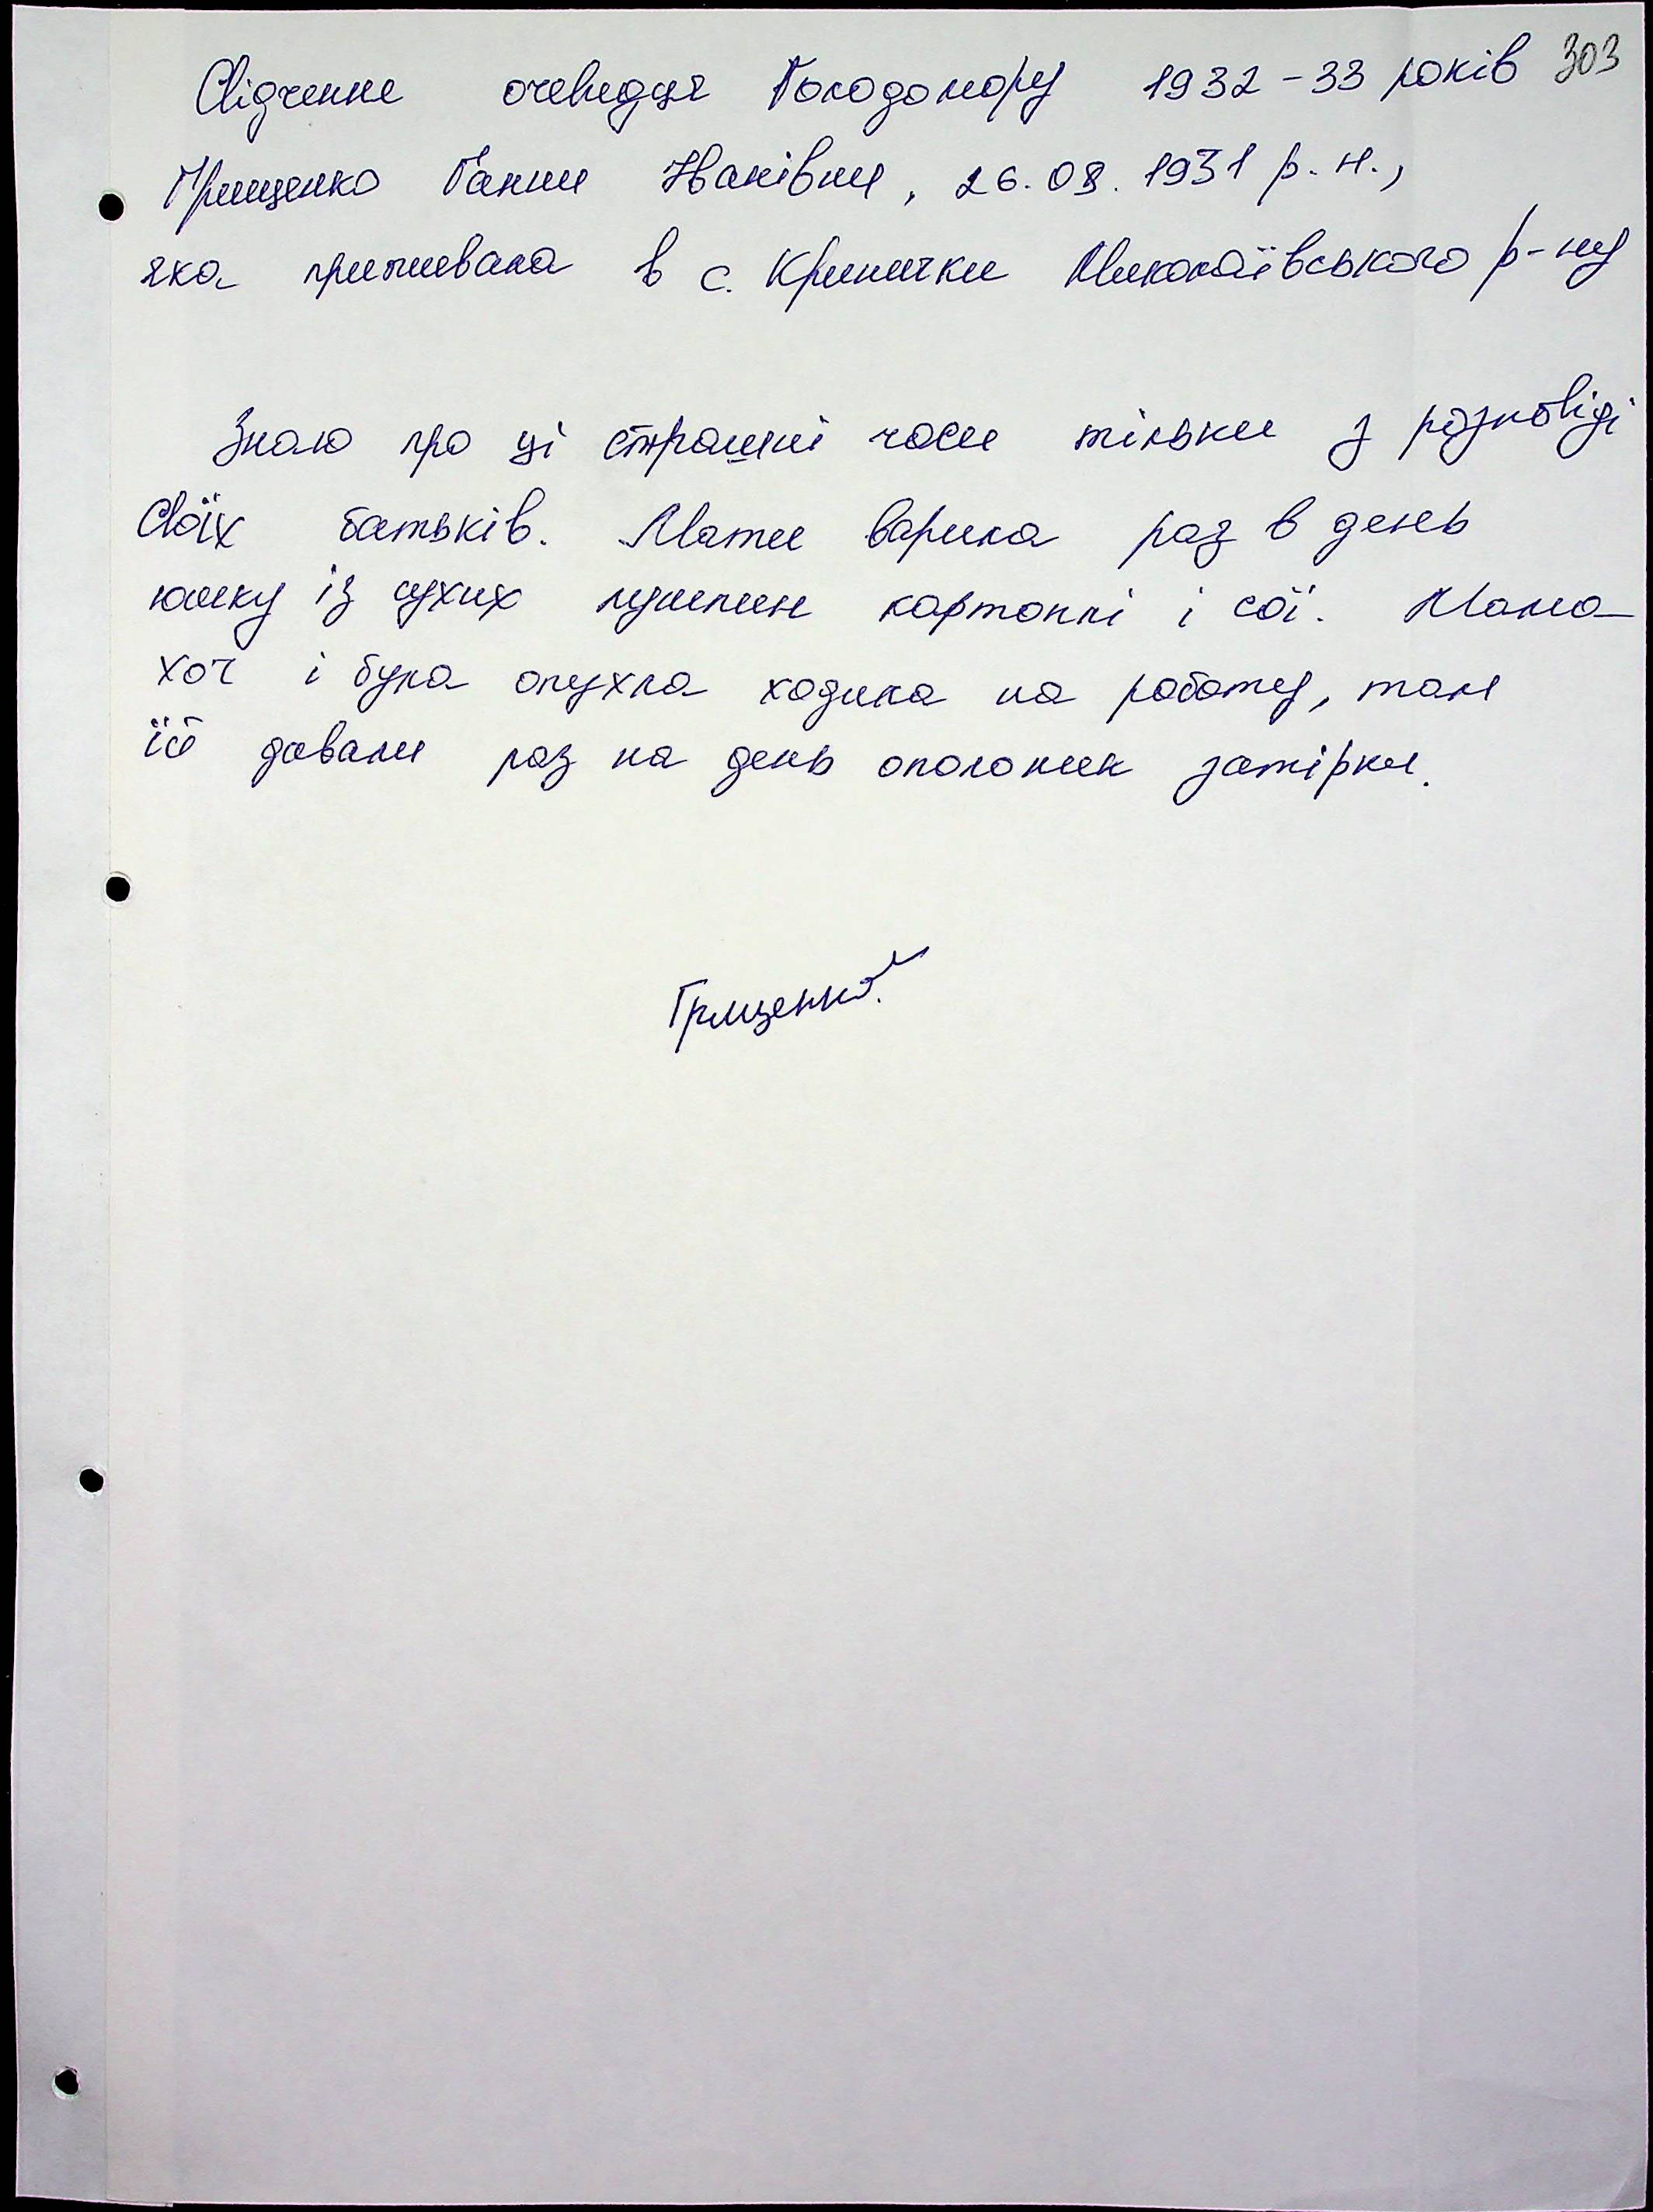 Свідчення очевидця Голодомору 1932-33 років 303
Грищенко Ганни Іванівни, 26.08.1931 р.н.,
яка проживала в с. Кринички Миколаївського р-ну
Знаю про ці страшні часи тільки з розповіді
своїх батьків. Мати варила раз в день
юшку із сухих лушпин картоплі і сої. Мама
хоч і була опухла ходила на роботу, там
їй давали раз на день ополоник затірки.
Грищенко.